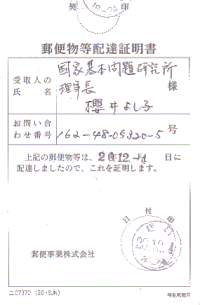 郵便物等配達証明書
受取人の氏名
国家基本問題研究所
理事長
櫻井よし子 様
お問い合わせ番号 162-48-05320-5 号
上記の郵便物等は、 日に
配達しましたので、これを証明します。
日付印
郵便事業株式会社